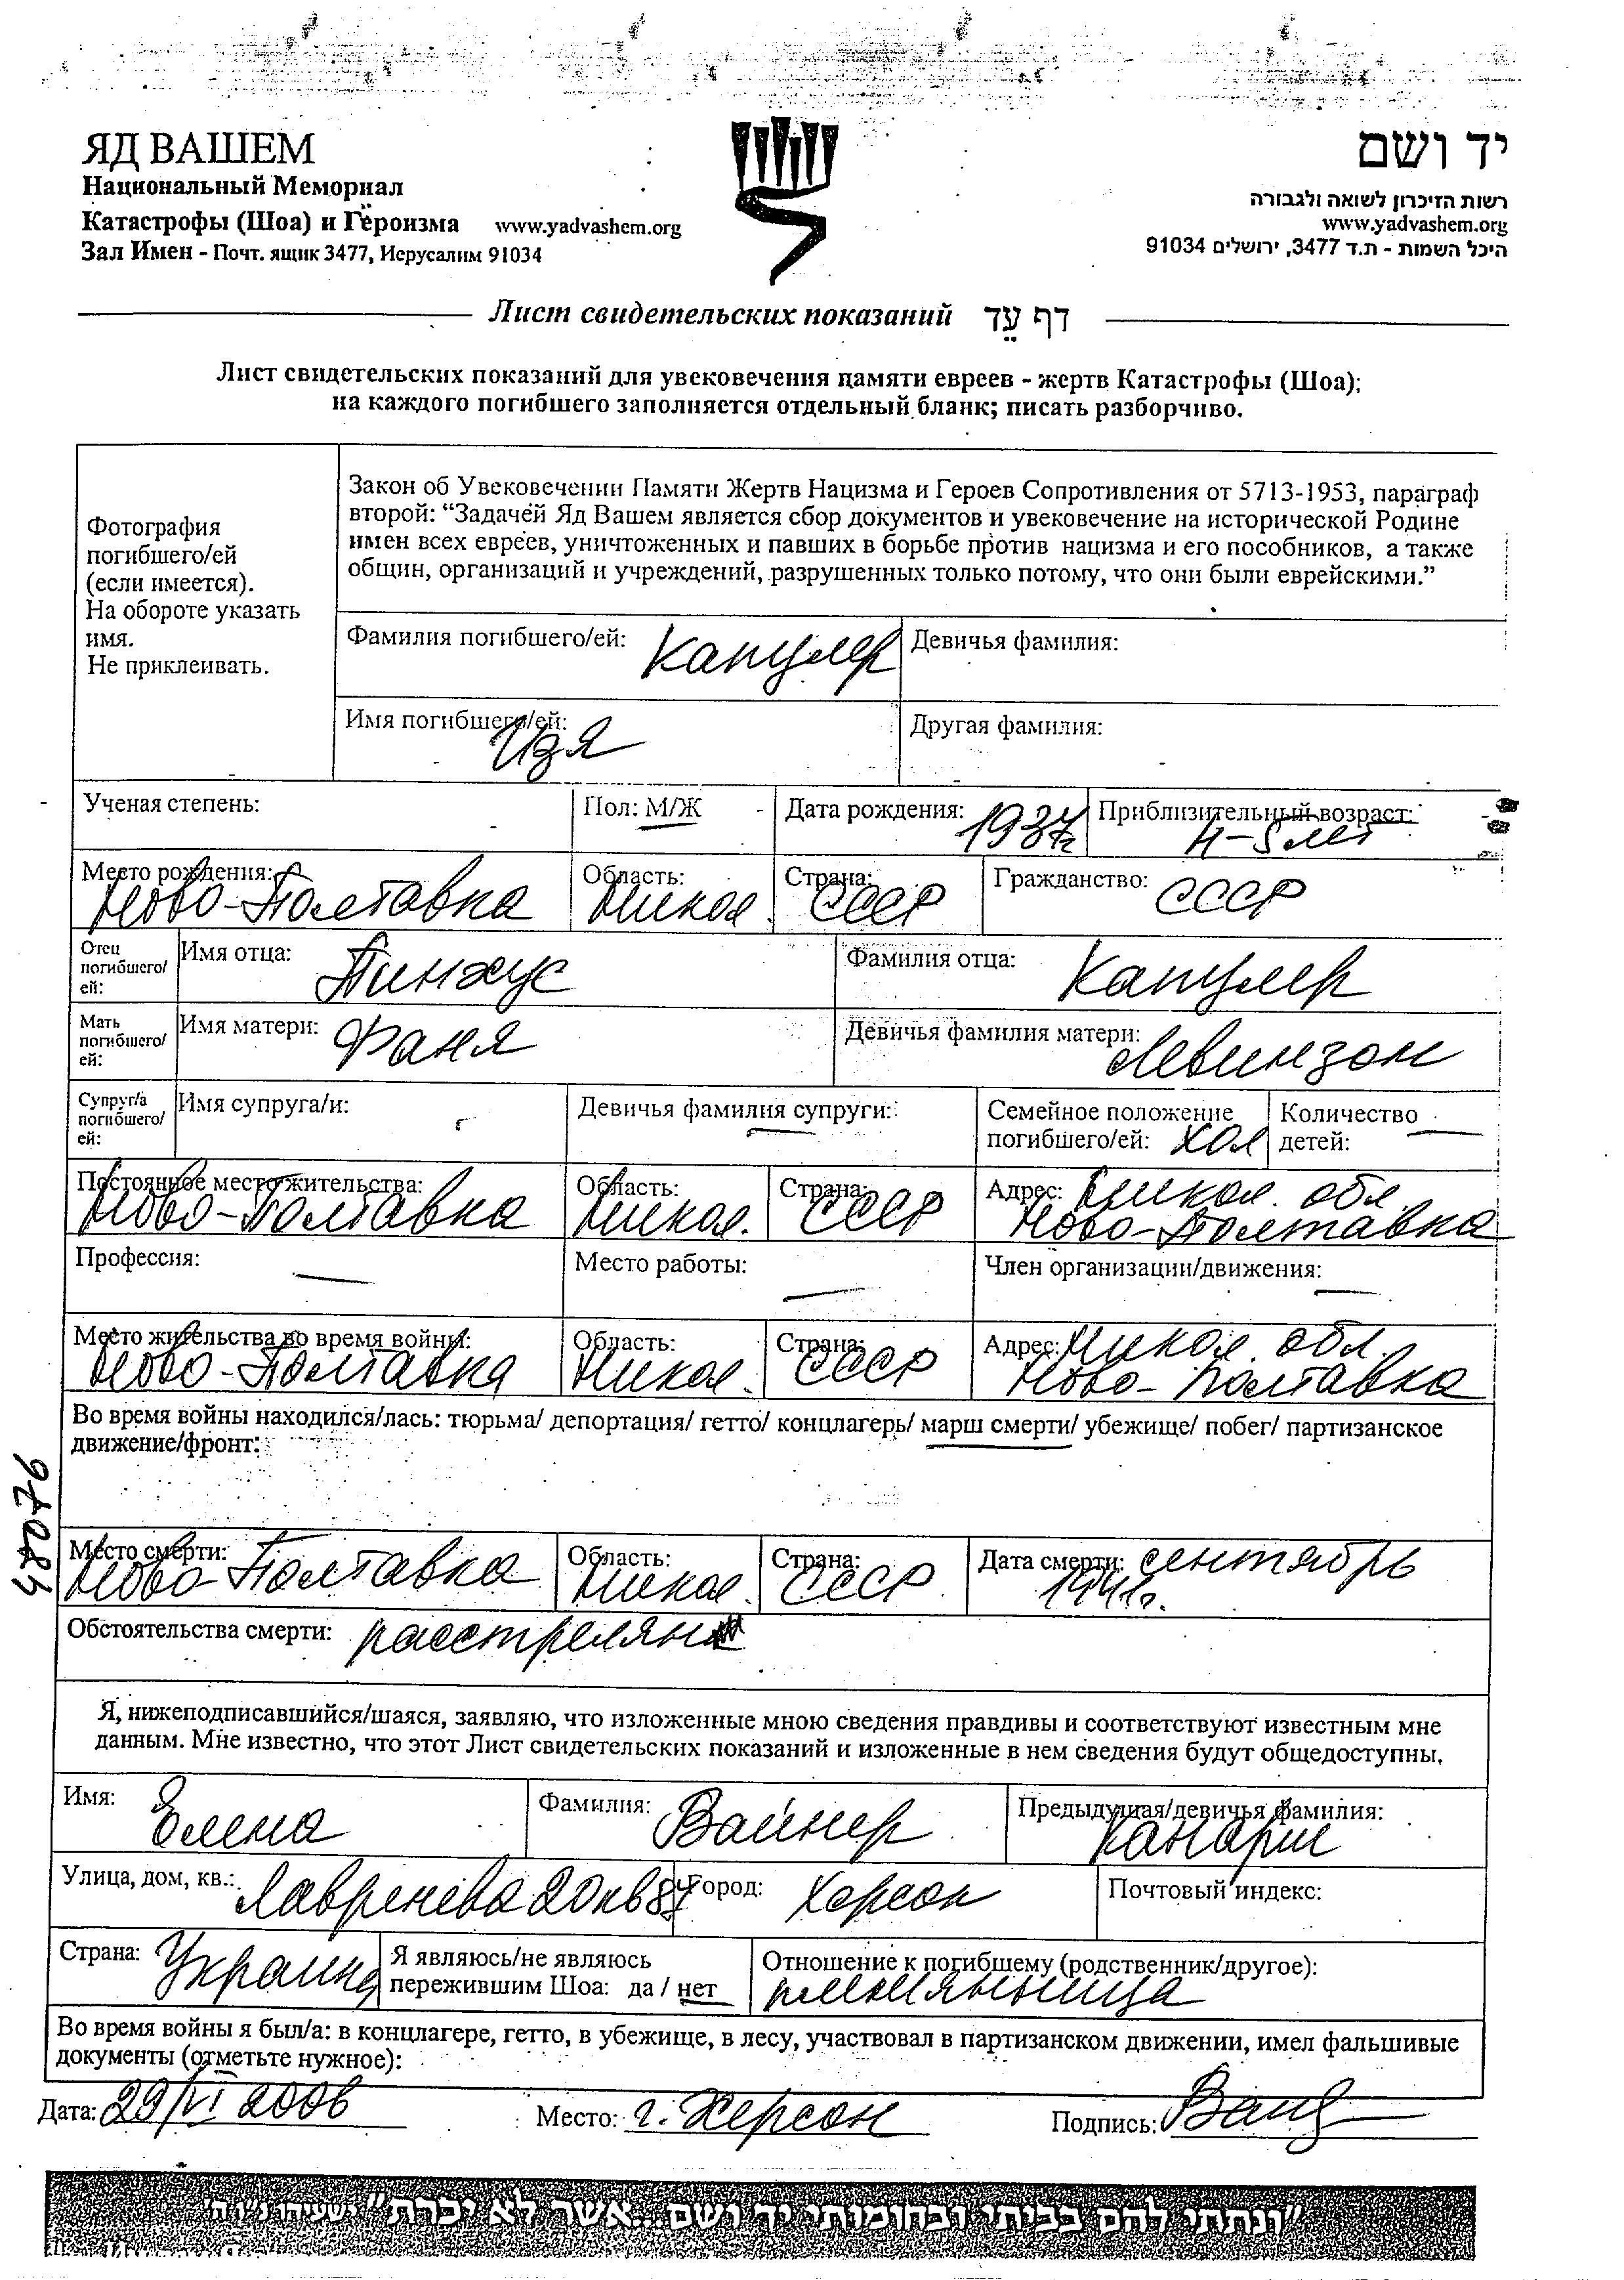 ЯД ВАШЕМ
Национальный Мемориал
Катастрофы (Шоа) и Героизма www.yadvashem.org
Зал Имен - Почт. ящик 3477, Иерусалим 91034
יד ושם
רשות הזיכרון לשואה ולגבורה
www.yadvashem.org
היכל השמות - ת.ד 3477, ירושלים 91034
Лист свидетельских показаний דף עֵד
Лист свидетельских показаний для увековечения памяти евреев - жертв Катастрофы (Шоа);
на каждого погибшего заполняется отдельный бланк; писать разборчиво.
Фотография
погибшего/ей
(если имеется).
На обороте указать
имя.
Не приклеивать.
Закон об Увековечении Памяти Жертв Нацизма и Героев Сопротивления от 5713-1953, параграф
второй: “Задачей Яд Вашем является сбор документов и увековечение на исторической Родине
имен всех евреев, уничтоженных и павших в борьбе против нацизма и его пособников, а также
общин, организаций и учреждений, разрушенных только потому, что они были еврейскими.”
Фамилия погибшего/ей: Капулер Девичья фамилия:
Имя погибшего/ей: Изя Другая фамилия:
Ученая степень: Пол: М/Ж Дата рождения: 1937г Приблизительный возраст: 4-5 лет
Место рождения: Ново-Полтавка Область: Никол. Страна: СССР Гражданство: СССР
Отец погибшего/ей: Имя отца: Пинхус Фамилия отца: Капулер
Мать погибшего/ей: Имя матери: Фаня Девичья фамилия матери: Левинзон
Супруг/а погибшего/ей: Имя супруга/и: Девичья фамилия супруги: Семейное положение погибшего/ей: хол Количество детей: —
Постоянное место жительства: Ново-Полтавка Область: Никол. Страна: СССР Адрес: Никол. обл.
Ново-Полтавка
Профессия: — Место работы: — Член организации/движения: —
Место жительства во время войны: Ново-Полтавка Область: Никол. Страна: СССР Адрес: Никол. обл.
Ново-Полтавка
Во время войны находился/лась: тюрьма/ депортация/ гетто/ концлагерь/ марш смерти/ убежище/ побег/ партизанское
движение/фронт:
97084
Место смерти: Ново-Полтавка Область: Никол. Страна: СССР Дата смерти: сентябрь
1941г.
Обстоятельства смерти: расстрелян
Я, нижеподписавшийся/шаяся, заявляю, что изложенные мною сведения правдивы и соответствуют известным мне
данным. Мне известно, что этот Лист свидетельских показаний и изложенные в нем сведения будут общедоступны.
Имя: Елена Фамилия: Вайнер Предыдущая/девичья фамилия: Канарш
Улица, дом, кв.: Лавренева 20 кв 87 Город: Херсон Почтовый индекс:
Страна: Украина Я являюсь/не являюсь
пережившим Шоа: да / нет Отношение к погибшему (родственник/другое):
племянница
Во время войны я был/а: в концлагере, гетто, в убежище, в лесу, участвовал в партизанском движении, имел фальшивые
документы (отметьте нужное):
Дата: 29/VI 2006 Место: г. Херсон Подпись:
"ונתתי להם בביתי ובחומותי יד ושם...אשר לא יכרת" ישעיהו נ"ו ה'